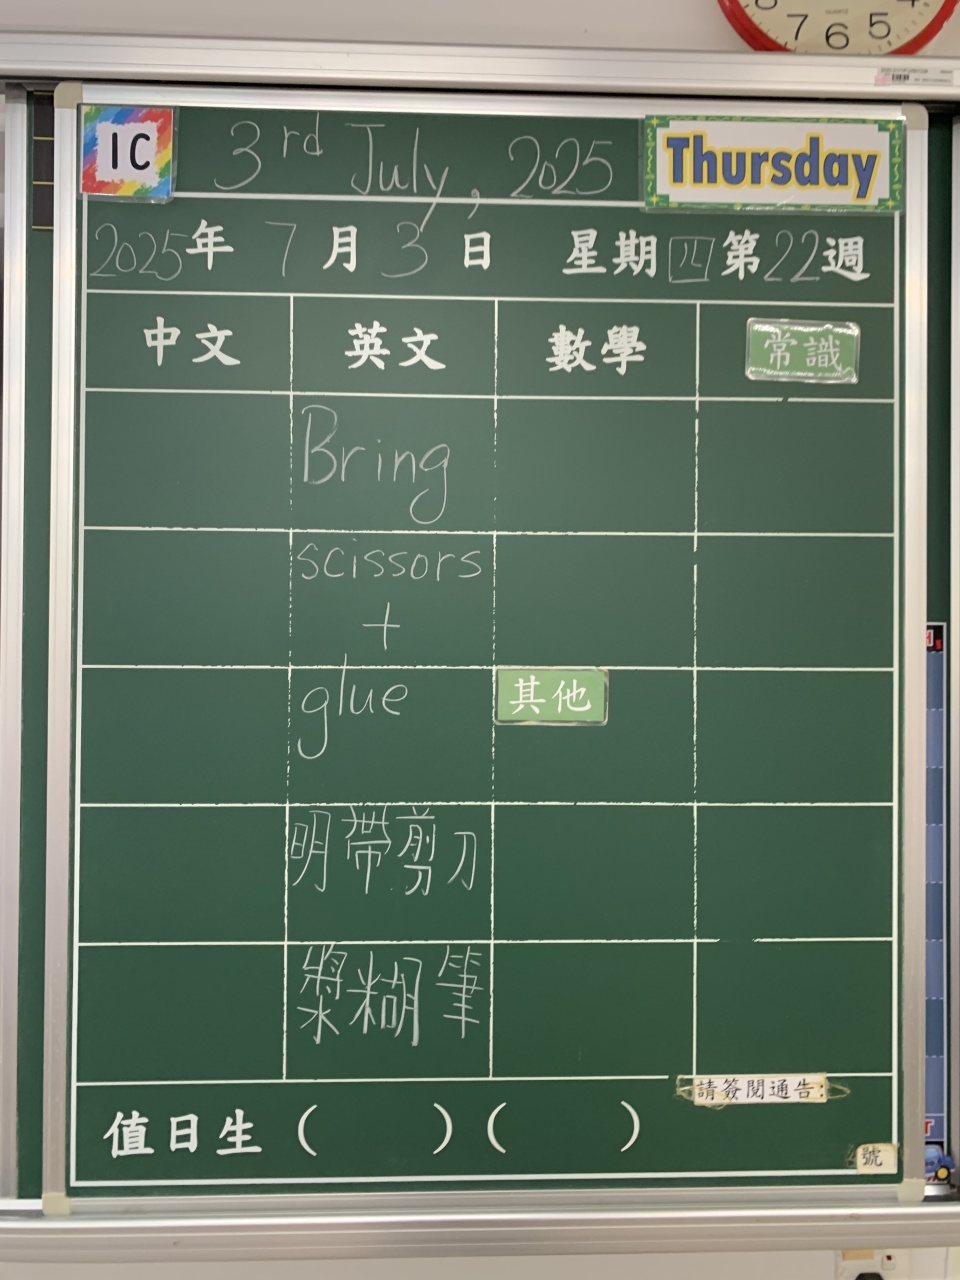 7 6 5
1C 3rd July, 2025 Thursday
2025年 7月3日 星期四 第22週
中文 英文 數學 常識
Bring
scissors
+
glue
其他
明帶剪刀
漿糊筆
請簽閱通告:
值日生 ( ) ( )
號